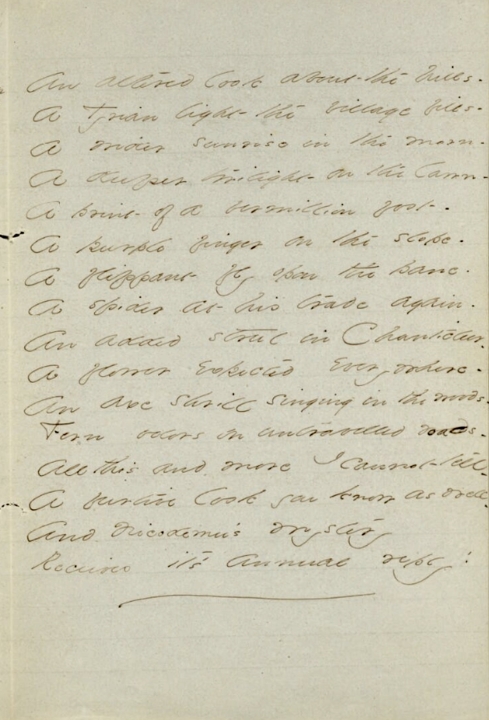 An altered look about the hills -
A Tyrian light the village fills -
A wider sunrise in the morn -
A deeper twilight on the lawn -
A print of a vermillion foot -
A purple finger on the slope -
A flippant fly upon the pane -
A spider at his trade again -
An added strut in Chanticleer -
A flower expected everywhere -
An axe shrill singing in the woods -
Fern odors on untravelled roads -
All this and more I cannot tell -
A furtive look you know as well -
And Nicodemus' Mystery
Receives it's annual reply!